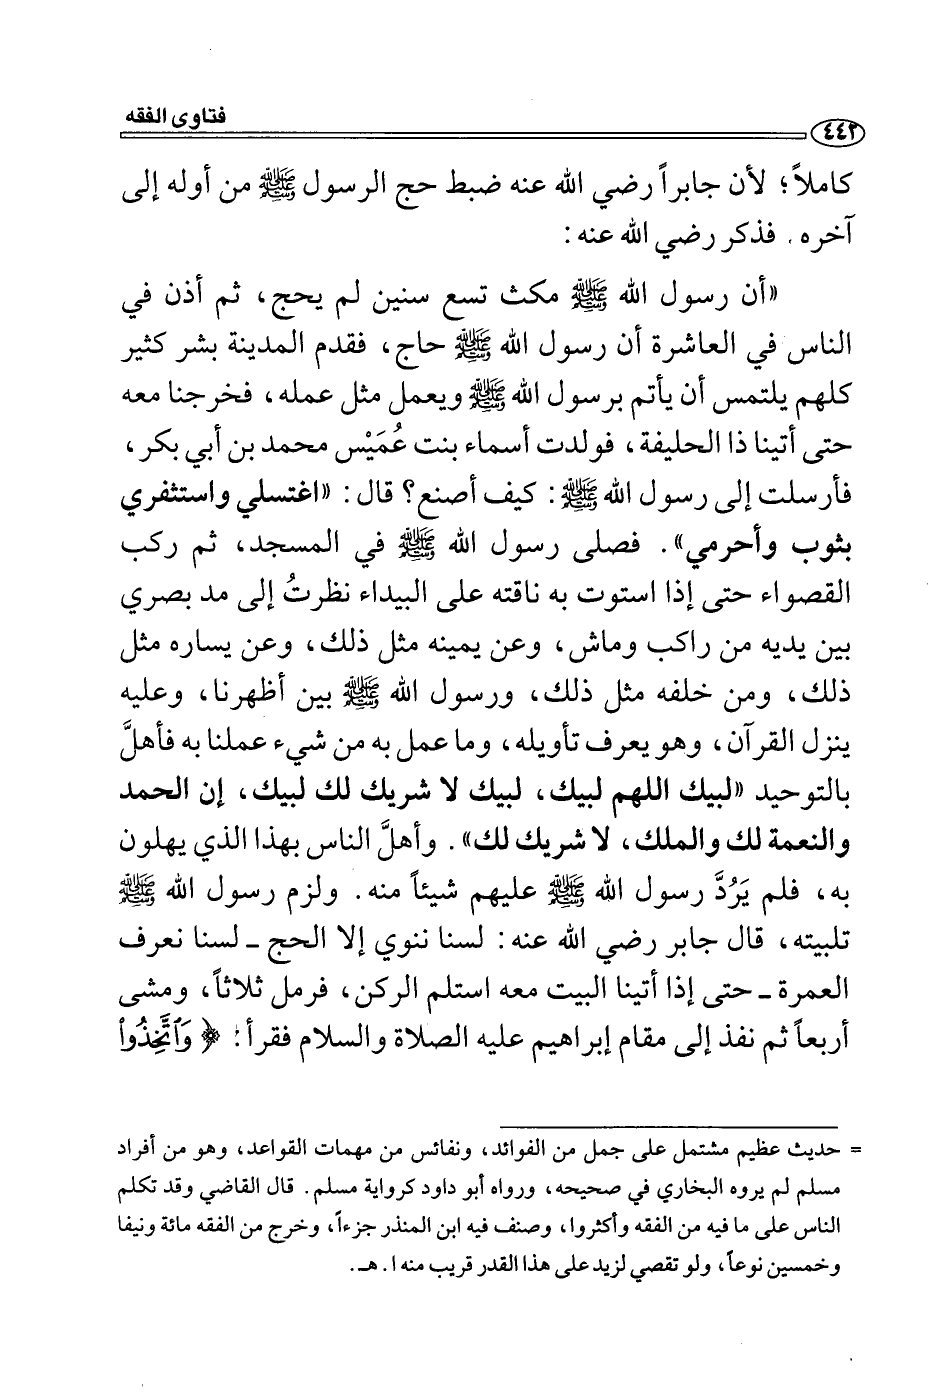 فتاوى الفقه
٤٤٢
كاملاً؛ لأن جابراً رضي الله عنه ضبط حج الرسول ﷺ من أوله إلى
آخره. فذكر رضي الله عنه:
«أن رسول الله ﷺ مكث تسع سنين لم يحج، ثم أذن في
الناس في العاشرة أن رسول الله ﷺ حاج، فقدم المدينة بشر كثير
كلهم يلتمس أن يأتم برسول الله ﷺ ويعمل مثل عمله، فخرجنا معه
حتى أتينا ذا الحليفة، فولدت أسماء بنت عُمَيْس محمد بن أبي بكر،
فأرسلت إلى رسول الله ﷺ: كيف أصنع؟ قال: «اغتسلي واستثفري
بثوب وأحرمي». فصلى رسول الله ﷺ في المسجد، ثم ركب
القصواء حتى إذا استوت به ناقته على البيداء نظرتُ إلى مد بصري
بين يديه من راكب وماش، وعن يمينه مثل ذلك، وعن يساره مثل
ذلك، ومن خلفه مثل ذلك، ورسول الله ﷺ بين أظهرنا، وعليه
ينزل القرآن، وهو يعرف تأويله، وما عمل به من شيء عملنا به فأهلَّ
بالتوحيد «لبيك اللهم لبيك، لبيك لا شريك لك لبيك، إن الحمد
والنعمة لك والملك، لا شريك لك». وأهلَّ الناس بهذا الذي يهلون
به، فلم يَرُدَّ رسول الله ﷺ عليهم شيئاً منه. ولزم رسول الله ﷺ
تلبيته، قال جابر رضي الله عنه: لسنا ننوي إلا الحج ـ لسنا نعرف
العمرة ـ حتى إذا أتينا البيت معه استلم الركن، فرمل ثلاثاً، ومشى
أربعاً ثم نفذ إلى مقام إبراهيم عليه الصلاة والسلام فقرأ: ﴿ وَٱتَّخِذُواْ
= حديث عظيم مشتمل على جمل من الفوائد، ونفائس من مهمات القواعد، وهو من أفراد
مسلم لم يروه البخاري في صحيحه، ورواه أبو داود كرواية مسلم. قال القاضي وقد تكلم
الناس على ما فيه من الفقه وأكثروا، وصنف فيه ابن المنذر جزءاً، وخرج من الفقه مائة ونيفا
وخمسين نوعاً، ولو تقصي لزيد على هذا القدر قريب منه ا. هـ.